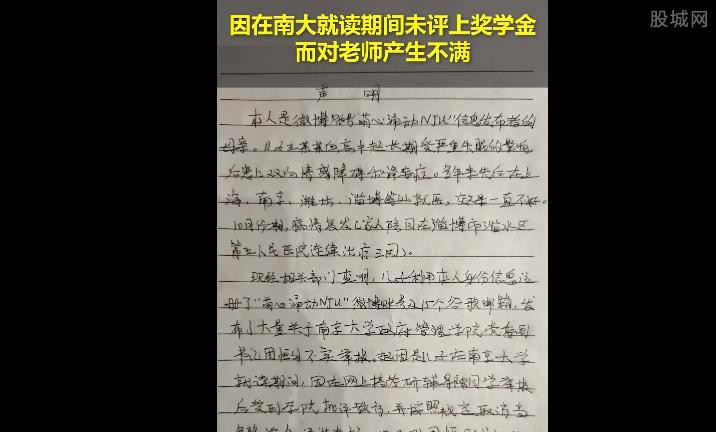 因在南大就读期间未评上奖学金
而对老师产生不满
股城网
声 明
本人是微博账号"萌心涌动NJU"信息发布者的
母亲。儿子王某某自高中起长期受严重失眠的影响
后患上双向情感障碍和
海、南京、潍坊、淄博等地就医,效果一直不好。
10月份期,病情复发(家人陪同在淄博市淄水区
第三人民医院连续治疗三周)。
现经相关部门查明,儿子利用本人身份信息注
册了"萌心涌动NJU"微博账号及15个谷歌邮箱,发
布了大量关于南京大学政府管理学院党委副
书记 不实举报。起因是儿子在南京大学
就读期间,因在网上搞考研辅导被同学举报
后受到学院批评教育,并按照规定取消当